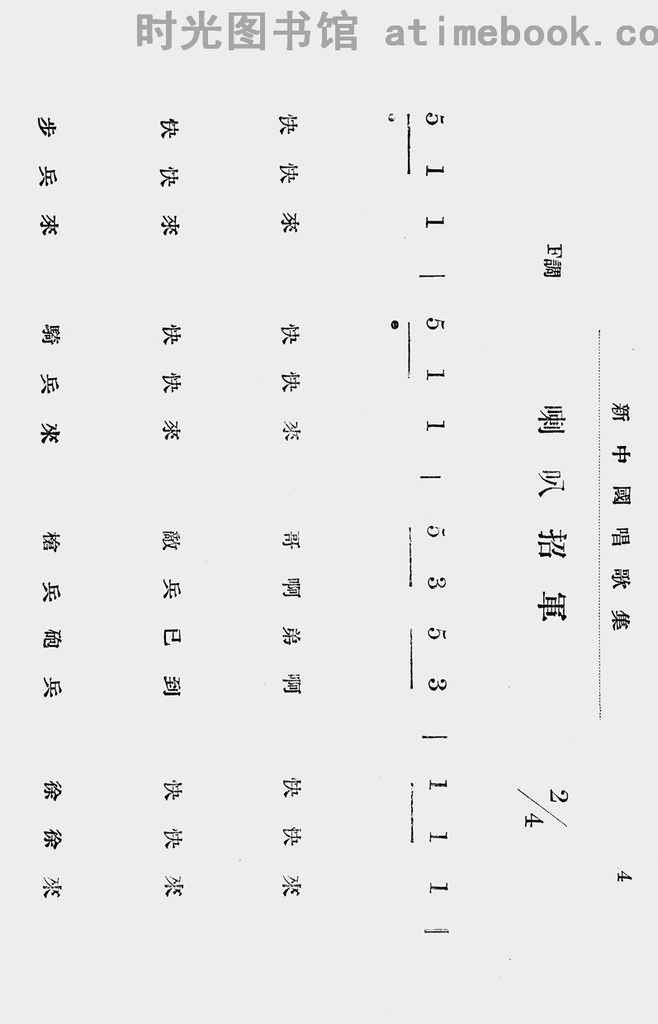 时光图书馆 atimebook.co
新中國唱歌集 4
F調 喇叭招軍 2/4
5 1 1 | 5 1 1 | 5 3 5 3 | 1 1 1 ||
快快來 快快來 哥啊弟啊 快快來
快快來 快快來 敵兵已到 快快來
步兵來 騎兵來 槍兵砲兵 徐徐來